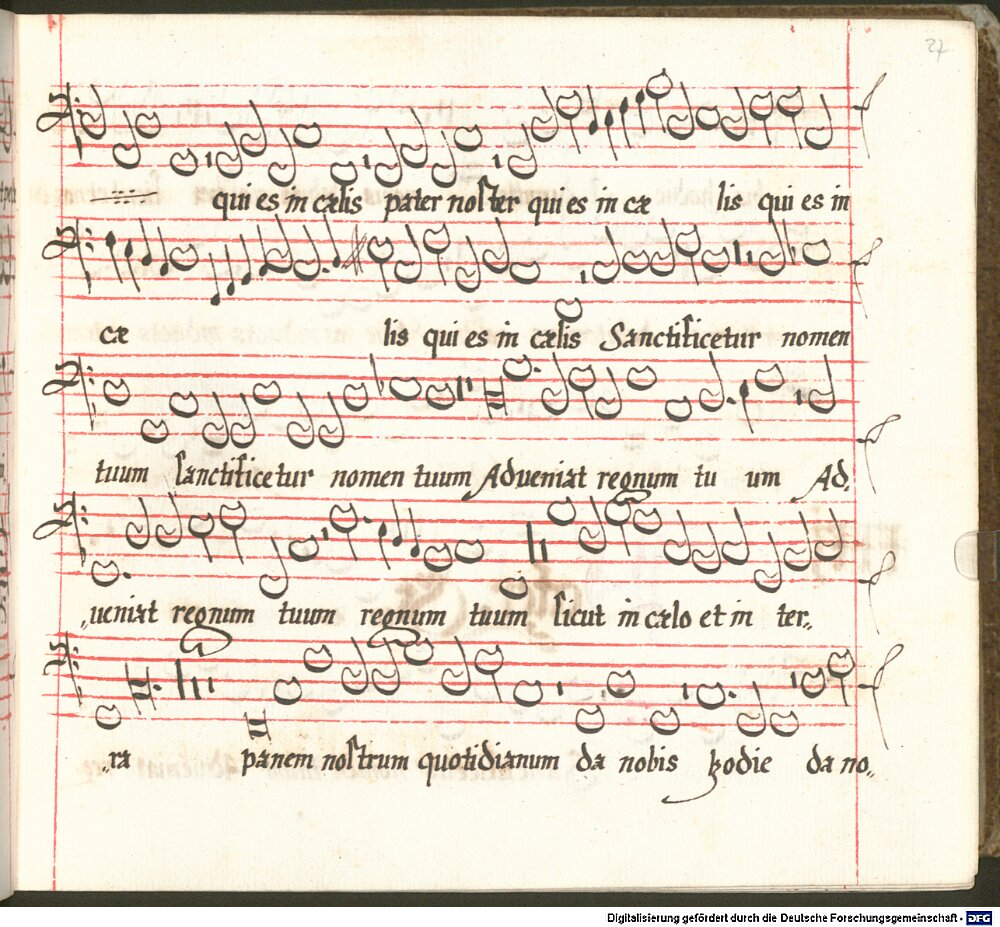 27
qui es in cælis pater noster qui es in cæ lis qui es in
cæ lis qui es in cælis Sanctificetur nomen
tuum sanctificetur nomen tuum Adveniat regnum tu um Ad
ueniat regnum tuum regnum tuum sicut in cælo et in ter
ra panem nostrum quotidianum da nobis hodie da no
Digitalisierung gefördert durch die Deutsche Forschungsgemeinschaft - DFG